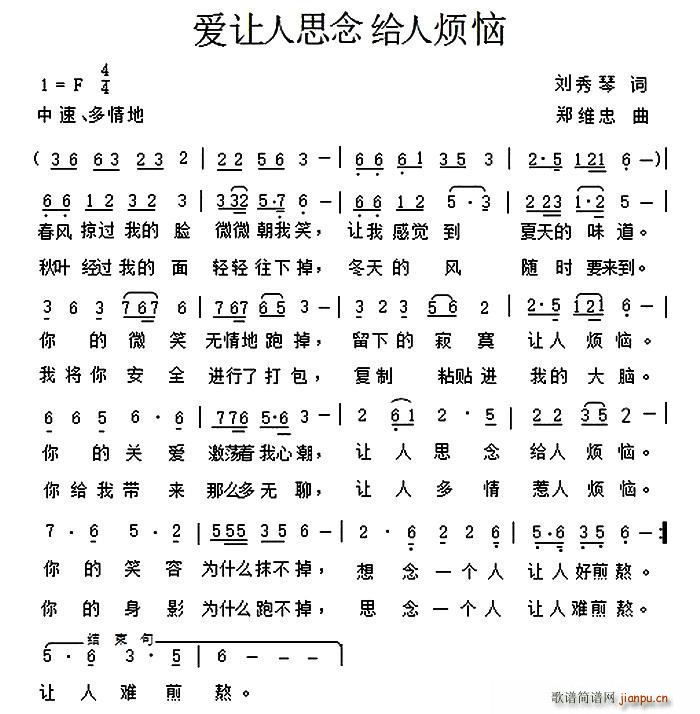 爱让人思念 给人烦恼
1 = F 4/4
刘秀琴 词
中速、多情地
郑维忠 曲
( 3 6 6 3 2 3 2 | 2 2 5 6 3 — | 6 6 6 1 3 5 3 | 2 · 5 1 2 1 6 — )|
6 6 1 2 3 2 3 | 3 3 2 5 · 7 6 — | 6 6 1 2 5 · 3 | 2 2 3 1 · 2 5 — |
春风 掠过 我的 脸 微微 朝我 笑， 让我 感觉 到 夏天的 味 道。
秋叶 经过 我的 面 轻轻 往下 掉， 冬天 的 风 随 时 要来到。
3 6 3 7 6 7 | 7 6 7 6 5 3 — | 6 2 3 5 6 2 | 2 · 5 1 2 1 6 — |
你 的 微 笑 无情地 跑 掉， 留下的 寂 寞 让人 烦 恼。
我 将 你 安 全 进行了 打 包， 复制 粘贴 进 我的 大 脑。
6 6 5 6 · 6 | 7 7 6 5 · 6 3 — | 2 6 1 2 · 5 | 2 2 3 5 2 — |
你 的 关 爱 激荡着 我心 潮， 让 人 思 念 给人 烦 恼。
你 给 我 带 来 那么多 无 聊， 让 人 多 情 惹人 烦 恼。
7 · 6 5 · 2 | 5 5 5 3 5 6 — | 2 · 6 2 2 6 | 5 · 6 3 5 6 — :|
你 的 笑 容 为什么 抹不 掉， 想 念 一 个 人 让人 好煎 熬。
你 的 身 影 为什么 跑不 掉， 思 念 一 个 人 让人 难煎 熬。
结 束 句
5 · 6 3 · 5 | 6 — — — ‖
让 人 难 煎 熬。
歌谱简谱网
jianpu.cn